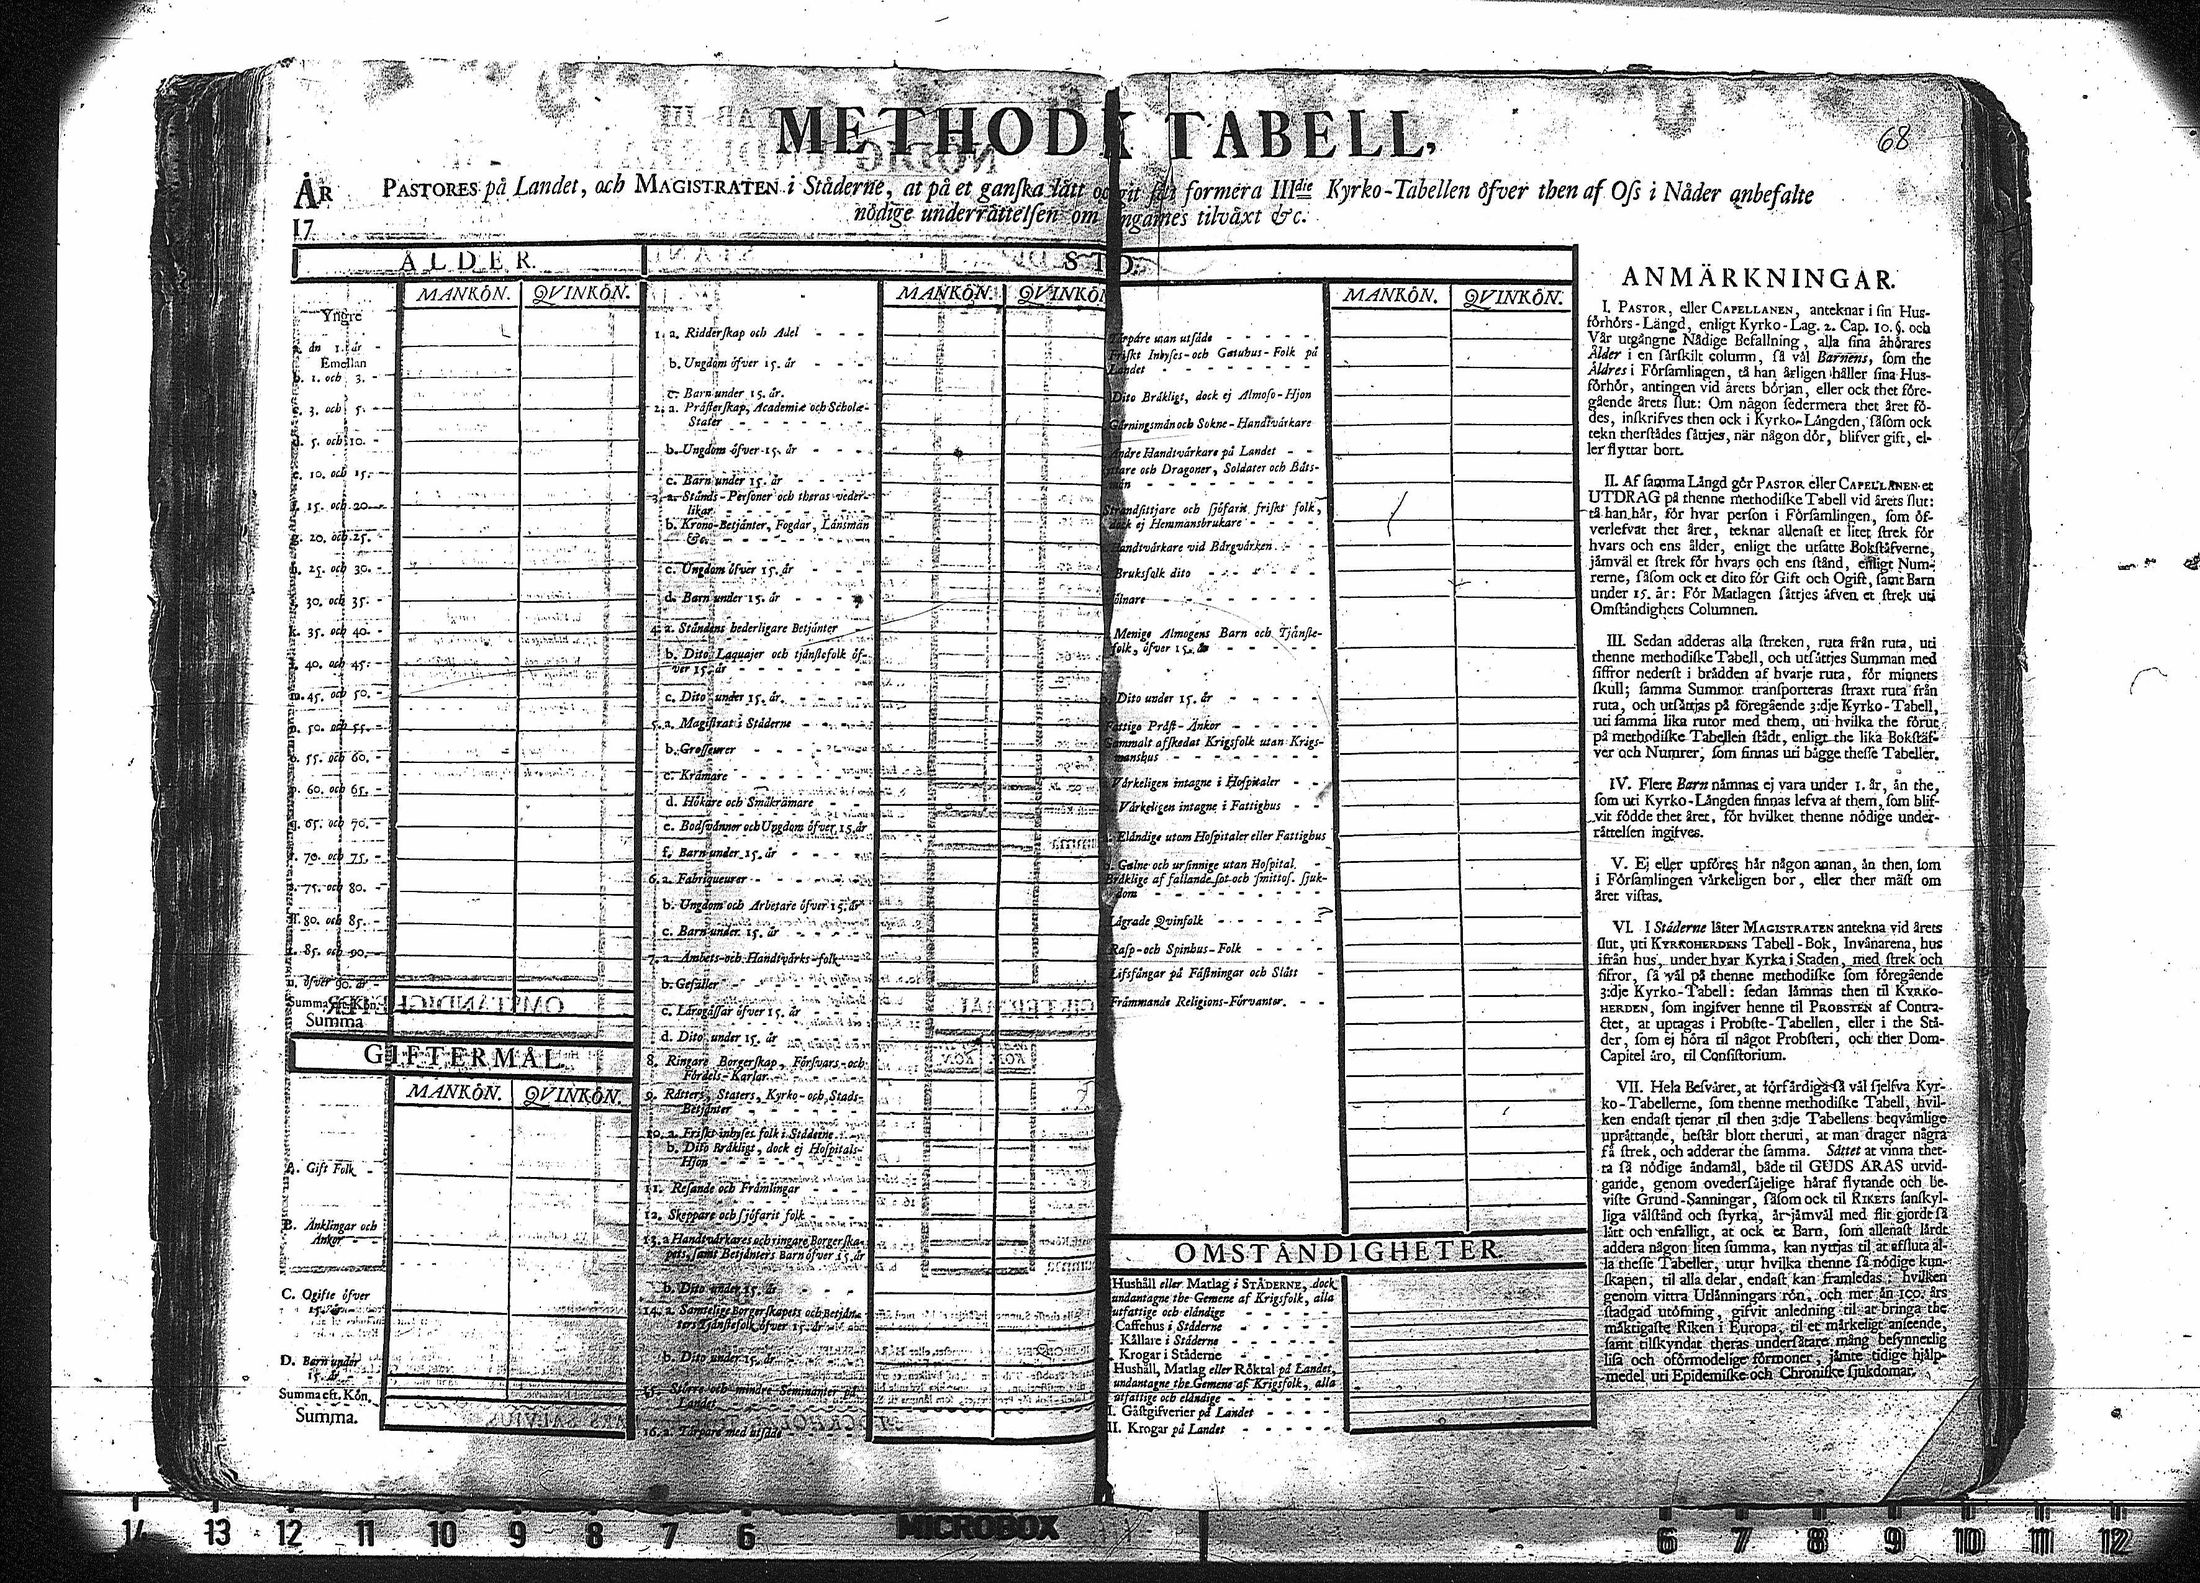 METHODI TABELL,
68
ÅR
17
PASTORES på Landet, och MAGISTRATEN i Ståderne, at på et ganſka lått formera IIIdie Kyrko-Tabellen öfver then af Oſs i Nåder anbefalte
nödige underråttelſen om tilvåxt &c.
ÅLDER.
MANKÖN. QVINKÖN.
Yngre
a. ån 1. år -
Emellan
b. 1. och 3. -
c. 3. och 5. -
d. 5. och 10. -
e. 10. och 15. -
f. 15. och 20. -
g. 20. och 25. -
h. 25. och 30. -
30. och 35. -
k. 35. och 40. -
l. 40. och 45. -
m. 45. och 50. -
n. 50. och 55. -
o. 55. och 60. -
p. 60. och 65. -
q. 65. och 70. -
r. 70. och 75. -
s. 75. och 80. -
ſſ. 80. och 85. -
t. 85. och 90. -
u. öfver 90. år -
Summa eft. Kön.
Summa
GIFTERMÅL
MANKÖN. QVINKÖN.
A. Gift Folk -
B. Änklingar och
Änkor -
C. Ogifte öfver
15. år
D. Barn under
15. år
Summa eft. Kön.
Summa.
MANKÖN. QVINKÖN
1. a. Ridderſkap och Adel - - -
b. Ungdom öfver 15. år - - -
c. Barn under 15. år.
2. a. Pråſterſkap, Academiæ och Scholæ-
Stater - - - - - -
b. Ungdom öfver 15. år - - -
c. Barn under 15. år - - - -
3. a. Stånds-Perſoner och theras veder-
likar - - - - - - -
b. Krono-Betjånter, Fogdar, Lånsmån
&c. - - - - - - -
c. Ungdom öfver 15. år - - -
d. Barn under 15. år - - - -
4. a. Ståndens hederligare Betjånter
b. Dito Laquajer och tjånſtefolk öf-
ver 15. år - - - - - -
c. Dito under 15. år. - - - -
5. a. Magiſtrat i Ståderne - - -
b. Groſſeurer - - - - -
c. Kråmare - - - - - -
d. Hökare och Småkråmare - - -
e. Bodſvånner och Ungdom öfver 15. år
f. Barn under 15. år - - - -
6. a. Fabriqueurer - - - - -
b. Ungdom och Arbetare öfver 15. år
c. Barn under 15. år - - - -
7. a. Ambets-och Handtvårks-folk
b. Gefåller - - - - - -
c. Lårogåſſar öfver 15. år - - -
d. Dito under 15. år - - - -
8. Ringare Borgerſkap, Förſvars-och
Fördels-Karlar - - - -
9. Råtters, Staters, Kyrko-och Stads-
Betjånter - - - - -
10. a. Friſkt inhyſes folk i Ståderne - -
b. Dito Bråkligt, dock ej Hoſpitals-
Hjon - - - - - -
11. Reſande och Fråmlingar - - -
12. Skeppare och ſjöfarit folk - - -
13. a Handtvårkares och ringare Borgerſka-
pets, ſamt Betjånters Barn öfver 15. år
b. Dito under 15. år - - - -
14. a. Samtelige Borgerſkapets och Betjån-
ters Tjånſtefolk öfver 15. år
b. Dito under 15. år - - - -
15. Större och mindre Seminanter på
Landet - - - - - -
16. a. Tårpare med utſåde
MANKÖN. QVINKÖN.
Tårpåre utan utſåde - - - - -
Friſkt Inhyſes-och Gatuhus-Folk på
Landet - - - - - - - -
Dito Bråkligt, dock ej Almoſo-Hjon
Gårningsmån och Sokne-Handtvårkare
Andre Handtvårkare på Landet - -
och Dragoner, Soldater och Båts-
mån - - - - - - - -
Strandſittjare och ſjöfarit friſkt folk,
dock ej Hemmansbrukare - - - -
Handtvårkare vid Bårgvårken. - -
Bruksfolk dito - - - - - -
Menige Almogens Barn och Tjånſte-
folk, öfver 15. år - - - - -
Dito under 15. år - - - - -
Fattige Pråſt-Änkor - - - - -
Gammalt afſkedat Krigsfolk utan Krigs-
manshus - - - - - - -
Vårkeligen intagne i Hoſpitaler - -
Vårkeligen intagne i Fattighus - -
Elåndige utom Hoſpitaler eller Fattighus
Galne och urſinnige utan Hoſpital. -
Bråklige af fallande ſot och ſmittoſ. ſjuk-
dom - - - - - - - -
Lågrade Qvinfolk - - - - - -
Raſp-och Spinhus-Folk - - - -
Lifsfångar på Fåſtningar och Slått -
Fråmmande Religions-Förvanter. - -
OMSTÅNDIGHETER.
Hushåll eller Matlag i STÅDERNE, dock
undantagne the Gemene af Krigsfolk, alla
utfattige och elåndige - - - - -
Caffehus i Ståderne - - - - -
Kållare i Ståderne - - - - -
Krogar i Ståderne - - - - -
Hushåll, Matlag eller Röktal på Landet,
undantagne the Gemene af Krigsfolk, alla
utfattige och elåndige - - - - -
I. Gåſtgifverier på Landet - - - -
II. Krogar på Landet - - - - -
ANMÄRKNINGAR.
I. PASTOR, eller CAPELLANEN, anteknar i ſin Hus-
förhörs-Längd, enligt Kyrko-Lag. 2. Cap. 10. §. och
Vår utgångne Nådige Befallning, alla ſina åhörares
Ålder i en ſårſkilt column, ſå vål Barnens, ſom the
Äldres i Förſamlingen, tå han årligen håller ſina Hus-
förhör, antingen vid årets början, eller ock thet före-
gående årets ſlut: Om någon ſedermera thet året fö-
des, inſkrifves then ock i Kyrko-Långden, ſåſom ock
tekn therſtådes ſåttjes, når någon dör, blifver gift, el-
ler flyttar bort.
II. Af ſamma Långd gör PASTOR eller CAPELLANEN et
UTDRAG på thenne methodiſke Tabell vid årets ſlut:
tå han hår, för hvar perſon i Förſamlingen, ſom öf-
verlefvat thet året, teknar allenaſt et litet ſtrek för
hvars och ens ålder, enligt the utſatte Bokſtåfverne,
jåmvål et ſtrek för hvars och ens ſtånd, enligt Num-
rerne, ſåſom ock et dito för Gift och Ogift, ſamt Barn
under 15. år: För Matlagen ſåttjes åfven et ſtrek uti
Omſtåndighets Columnen.
III. Sedan adderas alla ſtreken, ruta från ruta, uti
thenne methodiſke Tabell, och utſåttjes Summan med
ſiffror nederſt i brådden af hvarje ruta, för minnets
ſkull; ſamma Summor transporteras ſtraxt ruta från
ruta, och utſåttjas på föregående 3:dje Kyrko-Tabell,
uti ſamma lika rutor med them, uti hvilka the förut
på methodiſke Tabellen ſtådt, enligt the lika Bokſtåf-
ver och Numrer, ſom finnas uti bågge theſſe Tabeller.
IV. Flere Barn nåmnas ej vara under 1. år, ån the,
ſom uti Kyrko-Långden finnas lefva af them, ſom blif-
vit födde thet året, för hvilket thenne nödige under-
råttelſen ingifves.
V. Ej eller upföres hår någon annan, ån then, ſom
i Förſamlingen vårkeligen bor, eller ther måſt om
året viſtas.
VI. I Ståderne låter MAGISTRATEN antekna vid årets
ſlut, uti KYRKOHERDENS Tabell-Bok, Invånarena, hus
ifrån hus, under hvar Kyrka i Staden, med ſtrek och
ſifror, ſå vål på thenne methodiſke ſom föregående
3:dje Kyrko-Tabell: ſedan låmnas then til KYRKO-
HERDEN, ſom ingifver henne til PROBSTEN af Contra-
ctet, at uptagas i Probſte-Tabellen, eller i the Stå-
der, ſom ej höra til något Probſteri, och ther Dom-
Capitel åro, til Conſiſtorium.
VII. Hela Beſvåret, at förfårdiga ſå vål ſjelfva Kyr-
ko-Tabellerne, ſom thenne methodiſke Tabell, hvil-
ken endaſt tjenar til then 3:dje Tabellens beqvåmlige
upråttande, beſtår blott theruti, at man drager några
få ſtrek, och adderar the ſamma. Såttet at vinna thet-
ta ſå nödige åndamål, både til GUDS ÄRAS utvid-
gande, genom ovederſåjelige håraf flytande och be-
viſte Grund-Sanningar, ſåſom ock til RIKETS ſanſkyl-
liga vålſtånd och ſtyrka, år jåmvål med flit gjordt ſå
lått och enfålligt, at ock et Barn, ſom allenaſt lårdt
addera någon liten ſumma, kan nyttjas til at afſluta al-
la theſſe Tabeller, utur hvilka thenne ſå nödige kun-
ſkapen, til alla delar, endaſt kan framledas: hvilken
genom vittra Utlånningars rön, och mer ån 100. års
ſtadgad utöfning, gifvit anledning til at bringa the
måktigaſte Riken i Europa, til et mårkeligt anſeende,
ſamt tilſkyndat theras underſåtare mång beſynnerlig
liſa och oförmodelige förmoner, jåmte tidige hjålp-
medel uti Epidemiſke och Chroniſke ſjukdomar.
14 13 12 11 10 9 8 7 6
MICROBOX
6 7 8 9 10 11 12